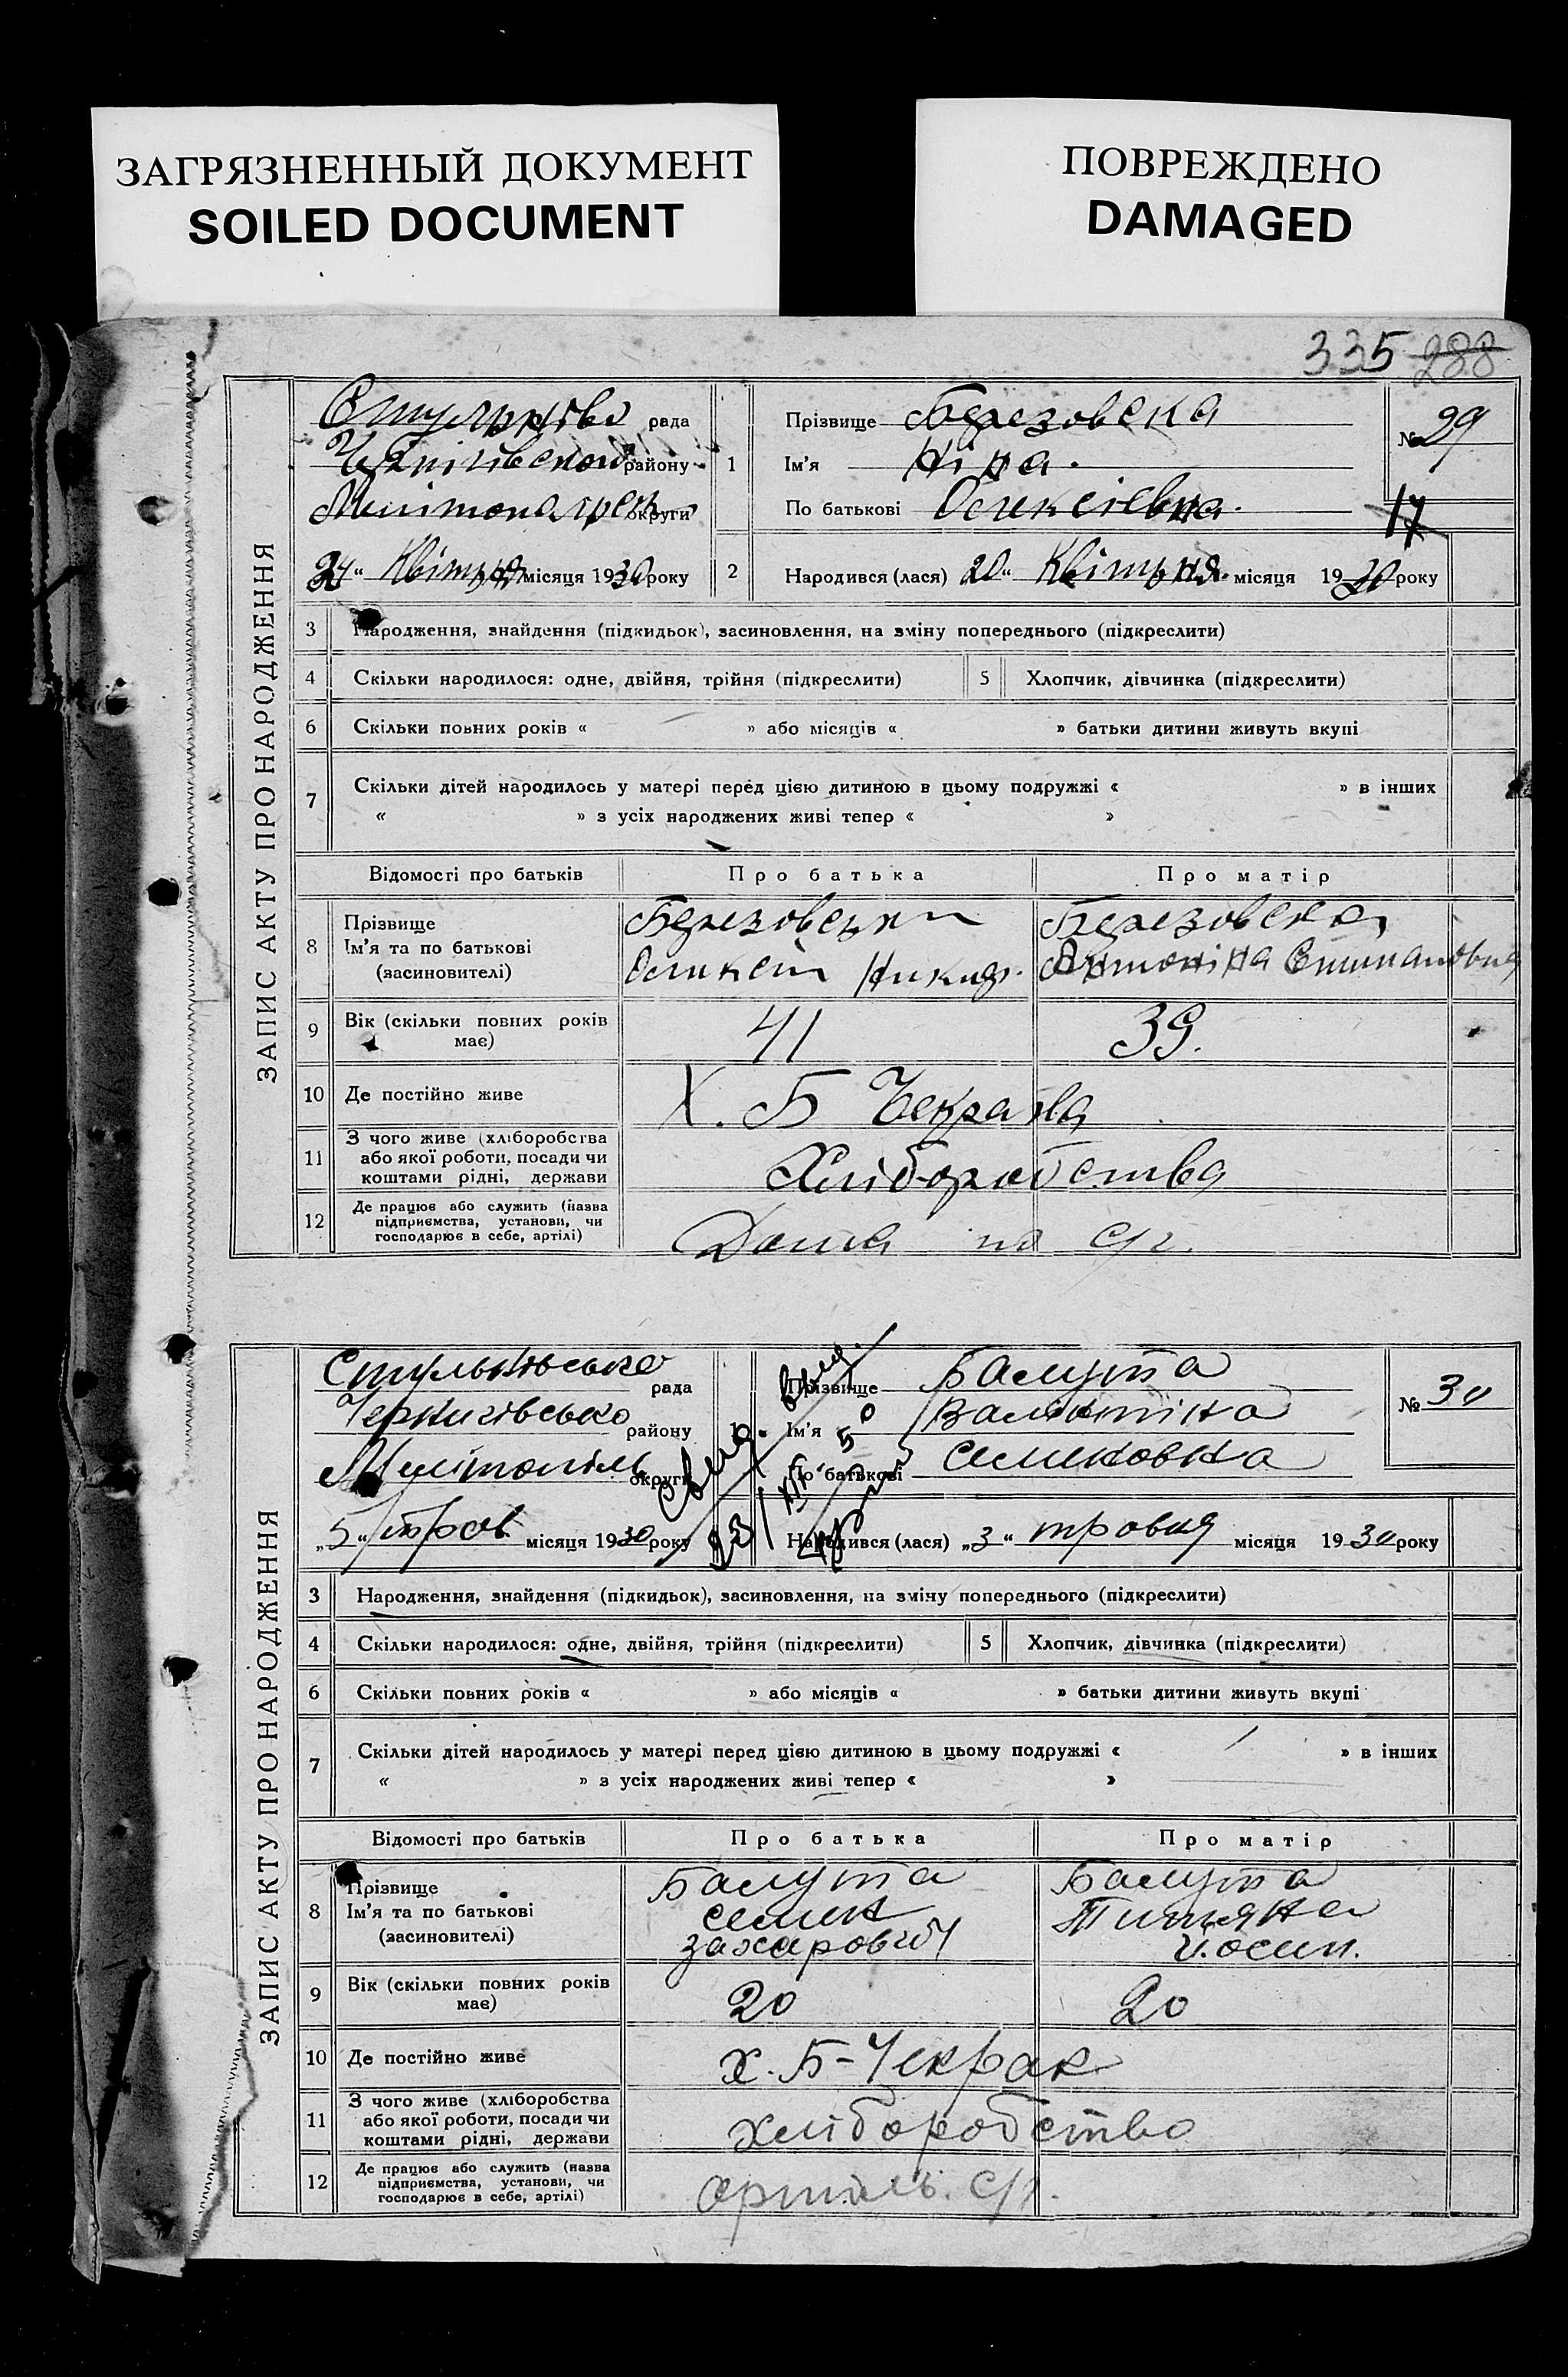 ЗАГРЯЗНЕННЫЙ ДОКУМЕНТ
SOILED DOCUMENT
ПОВРЕЖДЕНО
DAMAGED
335 288
ЗАПИС АКТУ ПРО НАРОДЖЕННЯ
рада
району
округи
„24“ Квітня місяця 1930 року
1 Прізвище Березовска
Ім'я Ніна.
По батькові Олексіевна.
№ 29
17
2 Народився (лася) 20“ Квітня. місяця 1930 року
3 Народження, знайдення (підкидьок), засиновлення, на зміну попереднього (підкреслити)
4 Скільки народилося: одне, двійня, трійня (підкреслити) 5 Хлопчик, дівчинка (підкреслити)
6 Скільки повних років « » або місяців « » батьки дитини живуть вкупі
7 Скільки дітей народилось у матері перед цією дитиною в цьому подружжі « » в інших
« » з усіх народжених живі тепер « »
Відомості про батьків Про батька Про матір
8 Прізвище
Ім'я та по батькові
(засиновителі)
Березовськи
Оликсій Никиф.
Березовска
Антоніна Степановна
9 Вік (скільки повних років
має)
41 39.
10 Де постійно живе Х. Б Чекрака
11 З чого живе (хліборобства
або якої роботи, посади чи
коштами рідні, держави
Хліборобства
12 Де працює або служить (назва
підприємства, установи, чи
господарює в себе, артілі)
Дома по С/г.
ЗАПИС АКТУ ПРО НАРОДЖЕННЯ
Стульнівсько рада
Чернигівсько району
Мелітопіль округи
„5“ трав місяця 1930 року
1 Прізвище Балута
Ім'я Валентіна
По батькові Семеновна
№ 30
Народився (лася) „3“ травня місяця 1930 року
3 Народження, знайдення (підкидьок), засиновлення, на зміну попереднього (підкреслити)
4 Скільки народилося: одне, двійня, трійня (підкреслити) 5 Хлопчик, дівчинка (підкреслити)
6 Скільки повних років « » або місяців « » батьки дитини живуть вкупі
7 Скільки дітей народилось у матері перед цією дитиною в цьому подружжі « » в інших
« » з усіх народжених живі тепер « »
Відомості про батьків Про батька Про матір
8 Прізвище
Ім'я та по батькові
(засиновителі)
Балута
Семен
Захарович
Балута
Титяна
Йосип.
9 Вік (скільки повних років
має)
20 20
10 Де постійно живе х. Б-Чекрак
11 З чого живе (хліборобства
або якої роботи, посади чи
коштами рідні, держави
хліборобство
12 Де працює або служить (назва
підприємства, установи, чи
господарює в себе, артілі)
артиль. С/г.